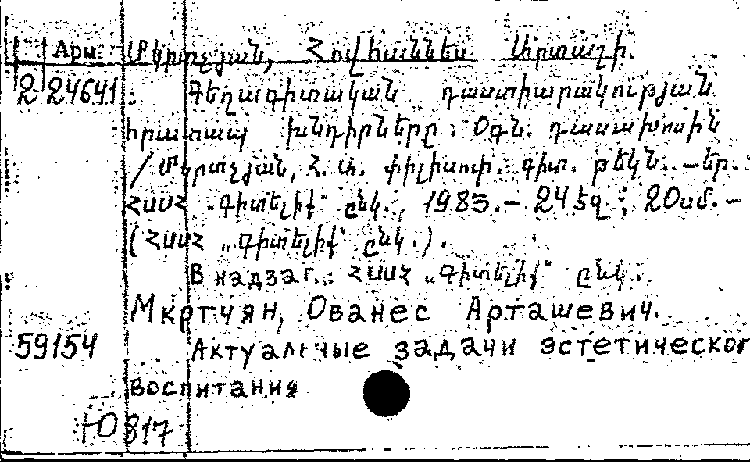 Арм. Մկրտչյան, Հովհաննես Արտաշի.
2 24641 Գեղագիտական դաստիարակության
հրատապ խնդիրները: Օգն. դասախոսին
/ Մկրտչյան, Հ. Ա. փիլիսոփ. գիտ. թեկն. – Եր.:
ՀՍՍՀ „Գիտելիք" ընկ., 1983.– 24 էջ; 20 սմ.–
(ՀՍՍՀ „Գիտելիք" ընկ.).
В надзаг.: ՀՍՍՀ „Գիտելիք" ընկ.
Мкртчян, Ованес Арташевич.
59154 Актуальные задачи эстетическог
воспитания
Ю 817